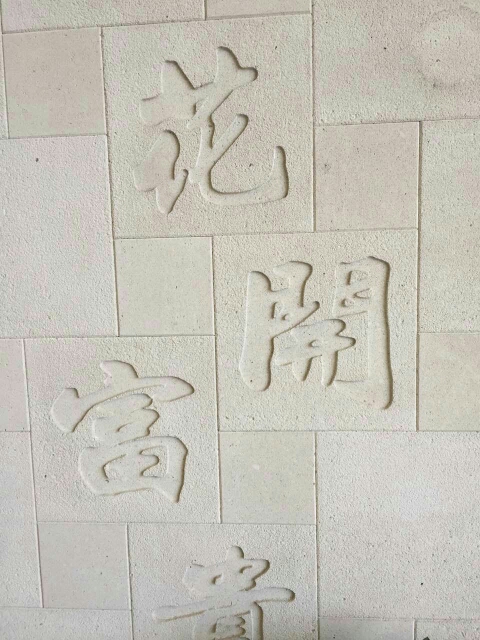 花
開
富
貴